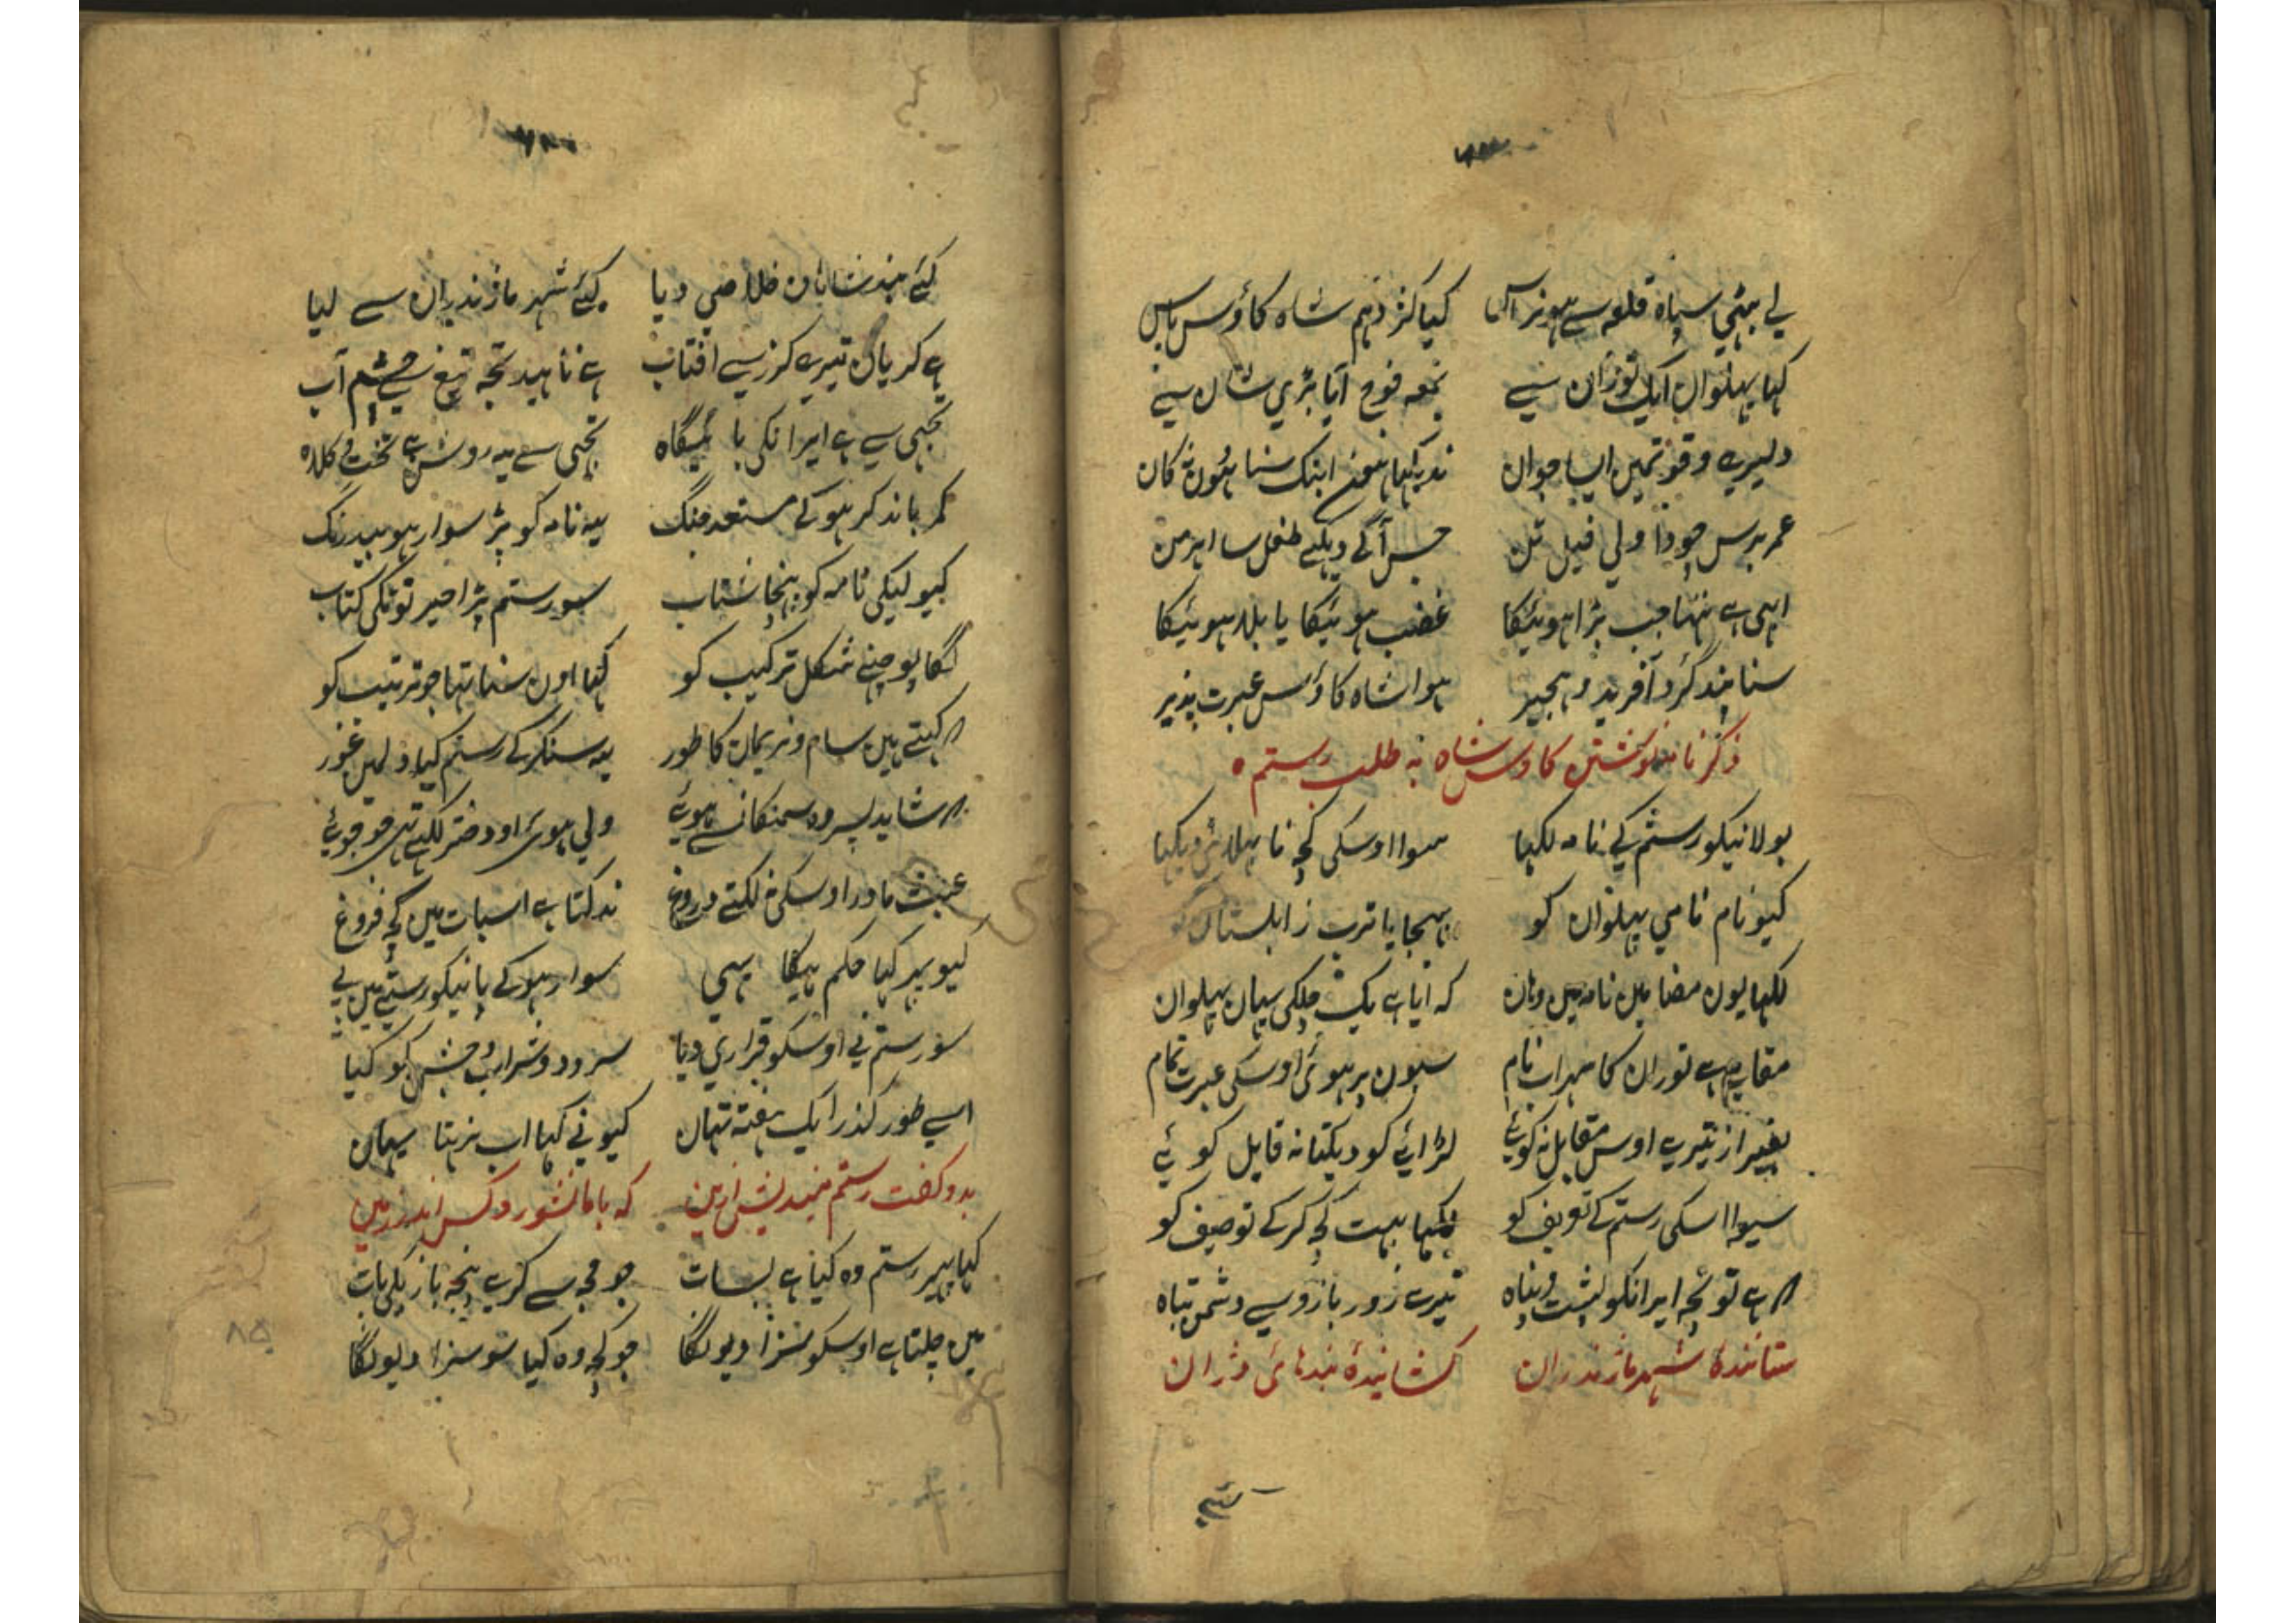 لے بیٹی سپاہ قلعہ سے ہونراس کیا کژدہم شاہ کاؤس پاس
کہا پہلوان ایک توران سے بمعہ فوج آیا بڑی شان سے
دلیری وقوتمیں ایسا جوان ندیکہا ابتک سنا ہون نہ کان
عمر برس چودا ولی فیل تن جس آگے دیکہے طفل سا اہرمن
ابہی ہے ننہا جب بڑا ہوئیگا غضب ہوئیگا یا بلا ہوئیگا
سنا بند گرد آفرید و ہجیر ہوا شاہ کاؤس عبرت پذیر
ذکر نامہ نوشتن کاوس شاہ بہ طلب رستم ہ
بولانیکو رستم کے نامہ لکہا سوا اوسکی کچہ نا بہلائی دیکہا
کیو نام نامی پہلوان کو بہجایا ترت زابلستان کو
لکہا یون مضامین نامہ میں وہان کہ ایا ہے یک ملکی سہان پہلوان
مقام ہے توران کا سہراب نام سبون پر ہوئی اوسکی عبرت تمام
بغیر از تیرے اوس مقابل نہ کوئے لڑائے کو دیکتا نہ قابل کوئے
سیوا اسکی رستم کے تعریف کو لکہا بہت کچہ کرکے توصیف کو
ہے تو تجہ ایرانکو پشت و پناہ تیرے زور بازو سے دشمن تباہ
ستانندۂ شہر مازندران کشانیدۂ بندہائ وژران
کئے بند شاہان خلاصی دیا کئے شہر مازندران سے لیا
ہے کریان تیرے کرز سے افتاب ہے ناہید تجہ تیغ سے چشم آب
تجہی سے ہے ایرانکی بائیگاہ تجہی سے یہ روشن ہے تخت و کلاہ
کمر باند کر ہوکے مستعد جنگ یہ نامہ کو پڑ سوار ہو بیدرنگ
کیو لیکی نامہ کو پہنچا شتاب سو رستم پڑا خیر تونکی کتاب
لگا پوچنے شکل ترکیب کو کہا اون سنا تہا جو ترتیب کو
کہتے ہین سام و نریمان کا طور یہ سنکر کے رستم کیا دلمین غور
شاید پسر وہ سمنکانسے ہوئے ولی ہوئ او دختر لکہے تہی
عبث مادر اوسکی نہ لکتے دروغ ندکتا ہے اسبات میں کچہ فروغ
کیو پہر کہا حکم ہیگا یہی سوار ہوکے پانیکو رستے میں پے
سو رستم نے اوسکو قراری دیا سرود و شراب و جشن کو کیا
اسے طور گذرا یک ہفتہ تہان کیو نے کہا اب نرہتا یہان
بدو گفت رستم میندیش ازین کہ با ما نشورد کس اندر زمین
کہا پہر رستم وہ کیا ہے بسات جو مجہ سے کرے پنجہ بازیکی بات
مین چلتا ہے اوسکو سزا دیونگا جو کچہ وہ کیا سو سزا دیونگا
۸۵